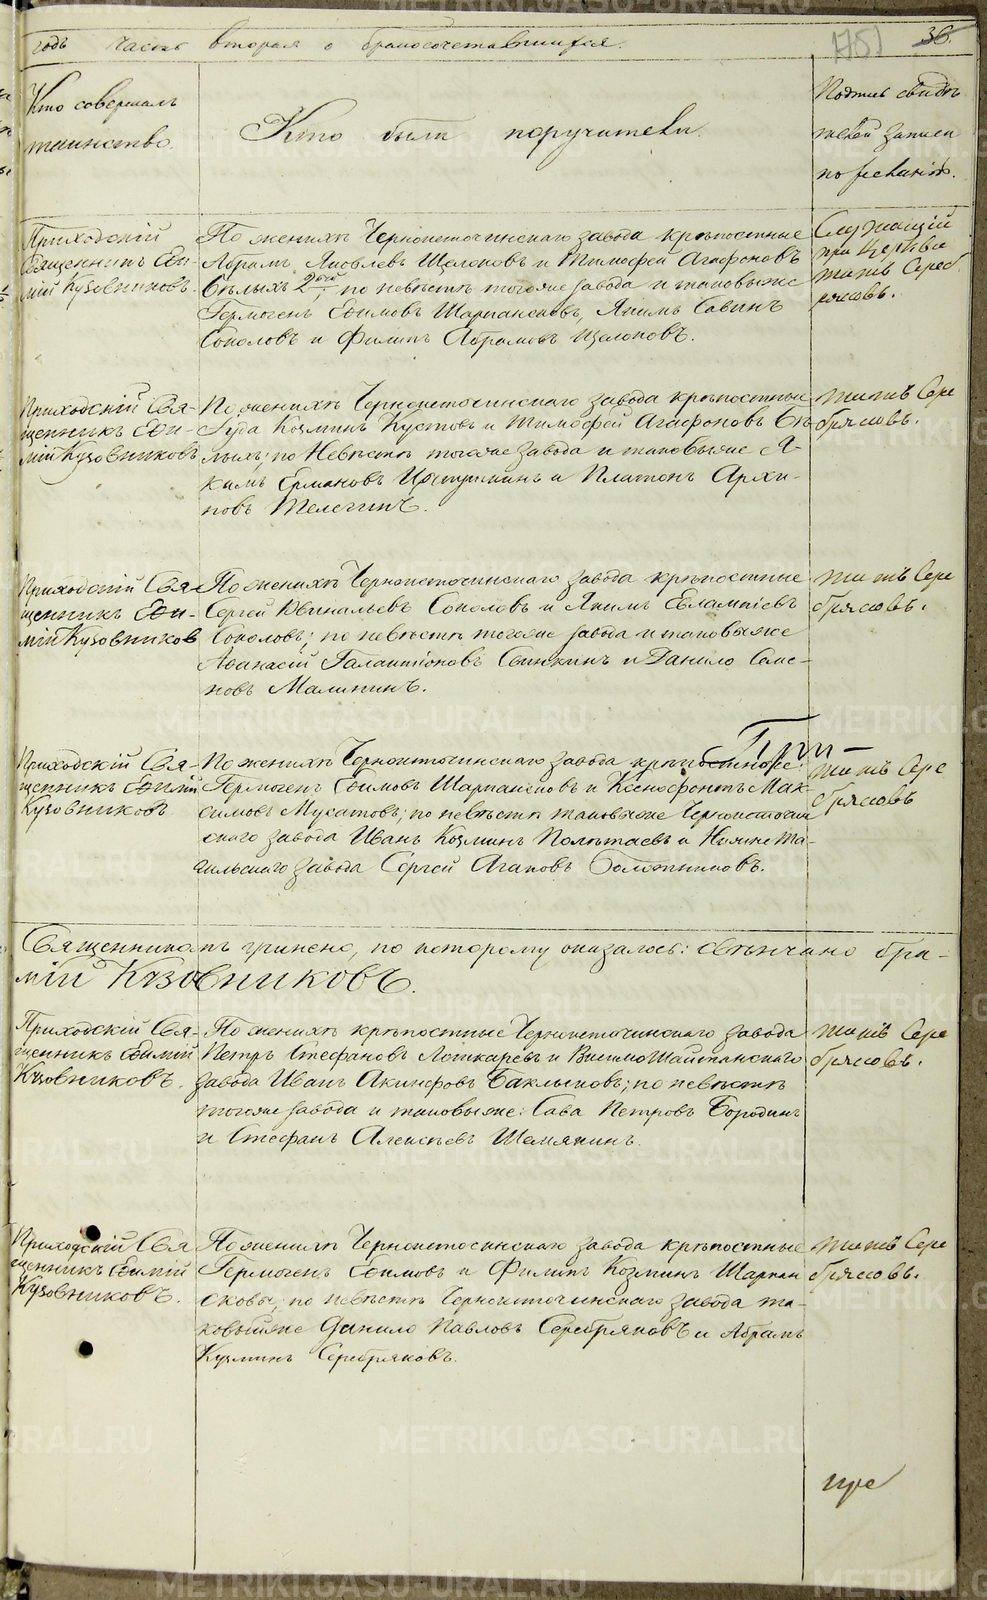 годъ часть вторая о бракосочетавшихся.
36.
Кто совершалъ
таинство.
Кто были поручители.
Подпись свидѣ
телей записи
по желанію.
Приходскій
Священникъ Еѳи-
мій Кузовниковъ.
По женихѣ Черноисточинскаго завода крѣпостные
Абрамъ Яковлевъ Щелоковъ и Тимофей Агафоновъ
Бѣлыхъ 2й по невѣстѣ тогоже завода и таковыеже
Гермогенъ Ефимовъ Шарпансковъ, Якимъ Савинъ
Соколовъ и Филипъ Абрамовъ Щелоковъ.
Служащій
при Церквѣ
Титъ Сереб
ряковъ.
Приходскій Свя-
щенникъ Еѳи-
мій Кузовниковъ
По женихѣ Черноисточинскаго завода крѣпостные
Гуда Козминъ Кустовъ и Тимофей Агафоновъ Бѣ
лыхъ; по Невѣстѣ тогоже завода и таковыеже Я-
кимъ Ермаковъ и Платонъ Архи-
повъ Телегинъ.
Титъ Сере
бряковъ.
Приходскій Свя
щенникъ Еѳи-
мій Кузовников
По женихѣ Черноисточинскаго завода крѣпостные
Сергей Соколовъ и Якимъ Евлампіевъ
Соколовъ; по невѣстѣ тогоже завода и таковыеже
Аѳанасій Галактіоновъ Свинкинъ и Данило Семе-
новъ Малининъ.
Титъ Сере
бряковъ.
При-
Приходскій Свя-
щенникъ Еѳимій
Кузовниковъ
По женихѣ Черноисточинскаго завода крѣпостные:
Гермогенъ Ефимовъ Шарпансковъ и Ксенофонтъ Мак
симовъ Мусатовъ; по невѣстѣ таковыеже Черноисточин
скаго завода Иванъ Козминъ Полѣтаевъ и Нижне Та-
гильскаго завода Сергей Агаповъ
Титъ Сере
бряковъ
Священникомъ чинено, по которому оказалось: свѣнчано бра-
мій Кузовниковъ.
Приходскій Свя-
щенникъ Еѳимій
Кузовниковъ.
По женихѣ крѣпостные Черноисточинскаго завода
Петръ Стефановъ Лошкаревъ и Висимо Шайтанскаго
завода Иванъ Акинфовъ Баклыковъ; по невѣстѣ
тогоже завода и таковыеже: Сава Петровъ Бородинъ
и Стефанъ Алексѣевъ Шемякинъ.
Титъ Сере
бряковъ.
Приходскій Свя
щенникъ Еѳимій
Кузовниковъ.
По женихѣ Черноисточинскаго завода крѣпостные
Гермогенъ Ефимовъ и Филипъ Козминъ Шарпан
сковы; по невѣстѣ Черноисточинскаго завода та-
ковыеже Данило Павловъ Серебряковъ и Абрамъ
Кузминъ Серебряковъ.
Титъ Сере
бряковъ.
METRIKI.GASO-URAL.RU